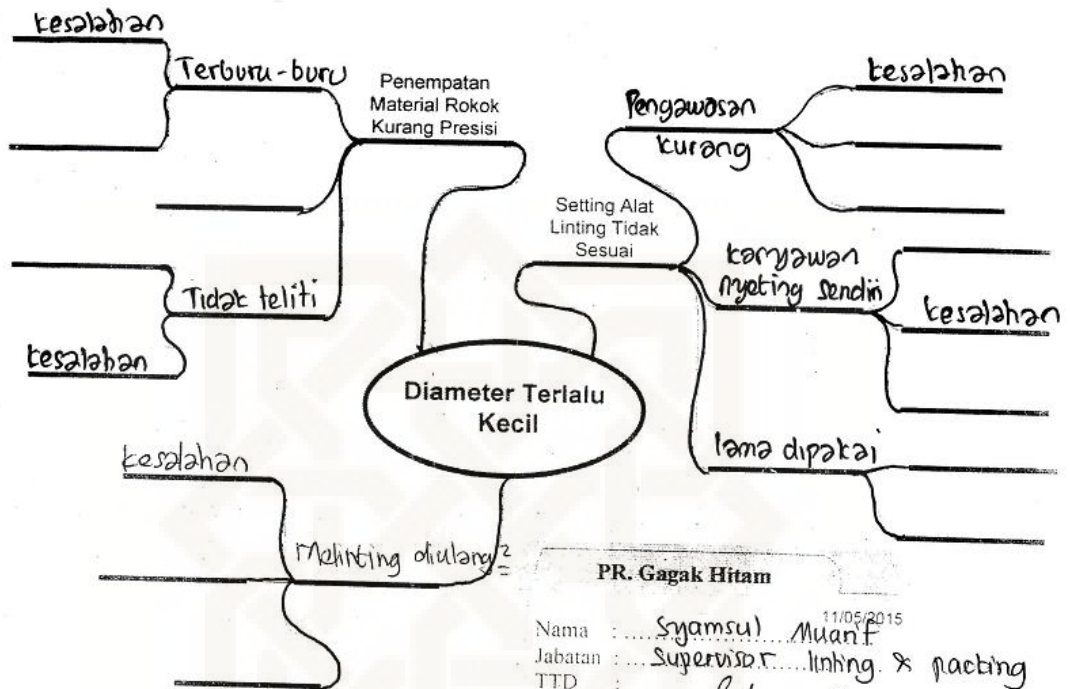 kesalahan
Terburu-buru
Penempatan
Material Rokok
Kurang Presisi
Tidak teliti
kesalahan
Pengawasan
kurang
kesalahan
Setting Alat
Linting Tidak
Sesuai
karyawan
nyeting sendiri
kesalahan
lama dipakai
Diameter Terlalu
Kecil
kesalahan
Melinting diulang2
PR. Gagak Hitam
11/05/2015
Nama : Syamsul Muanif
Jabatan : Supervisor linting & packing
TTD :